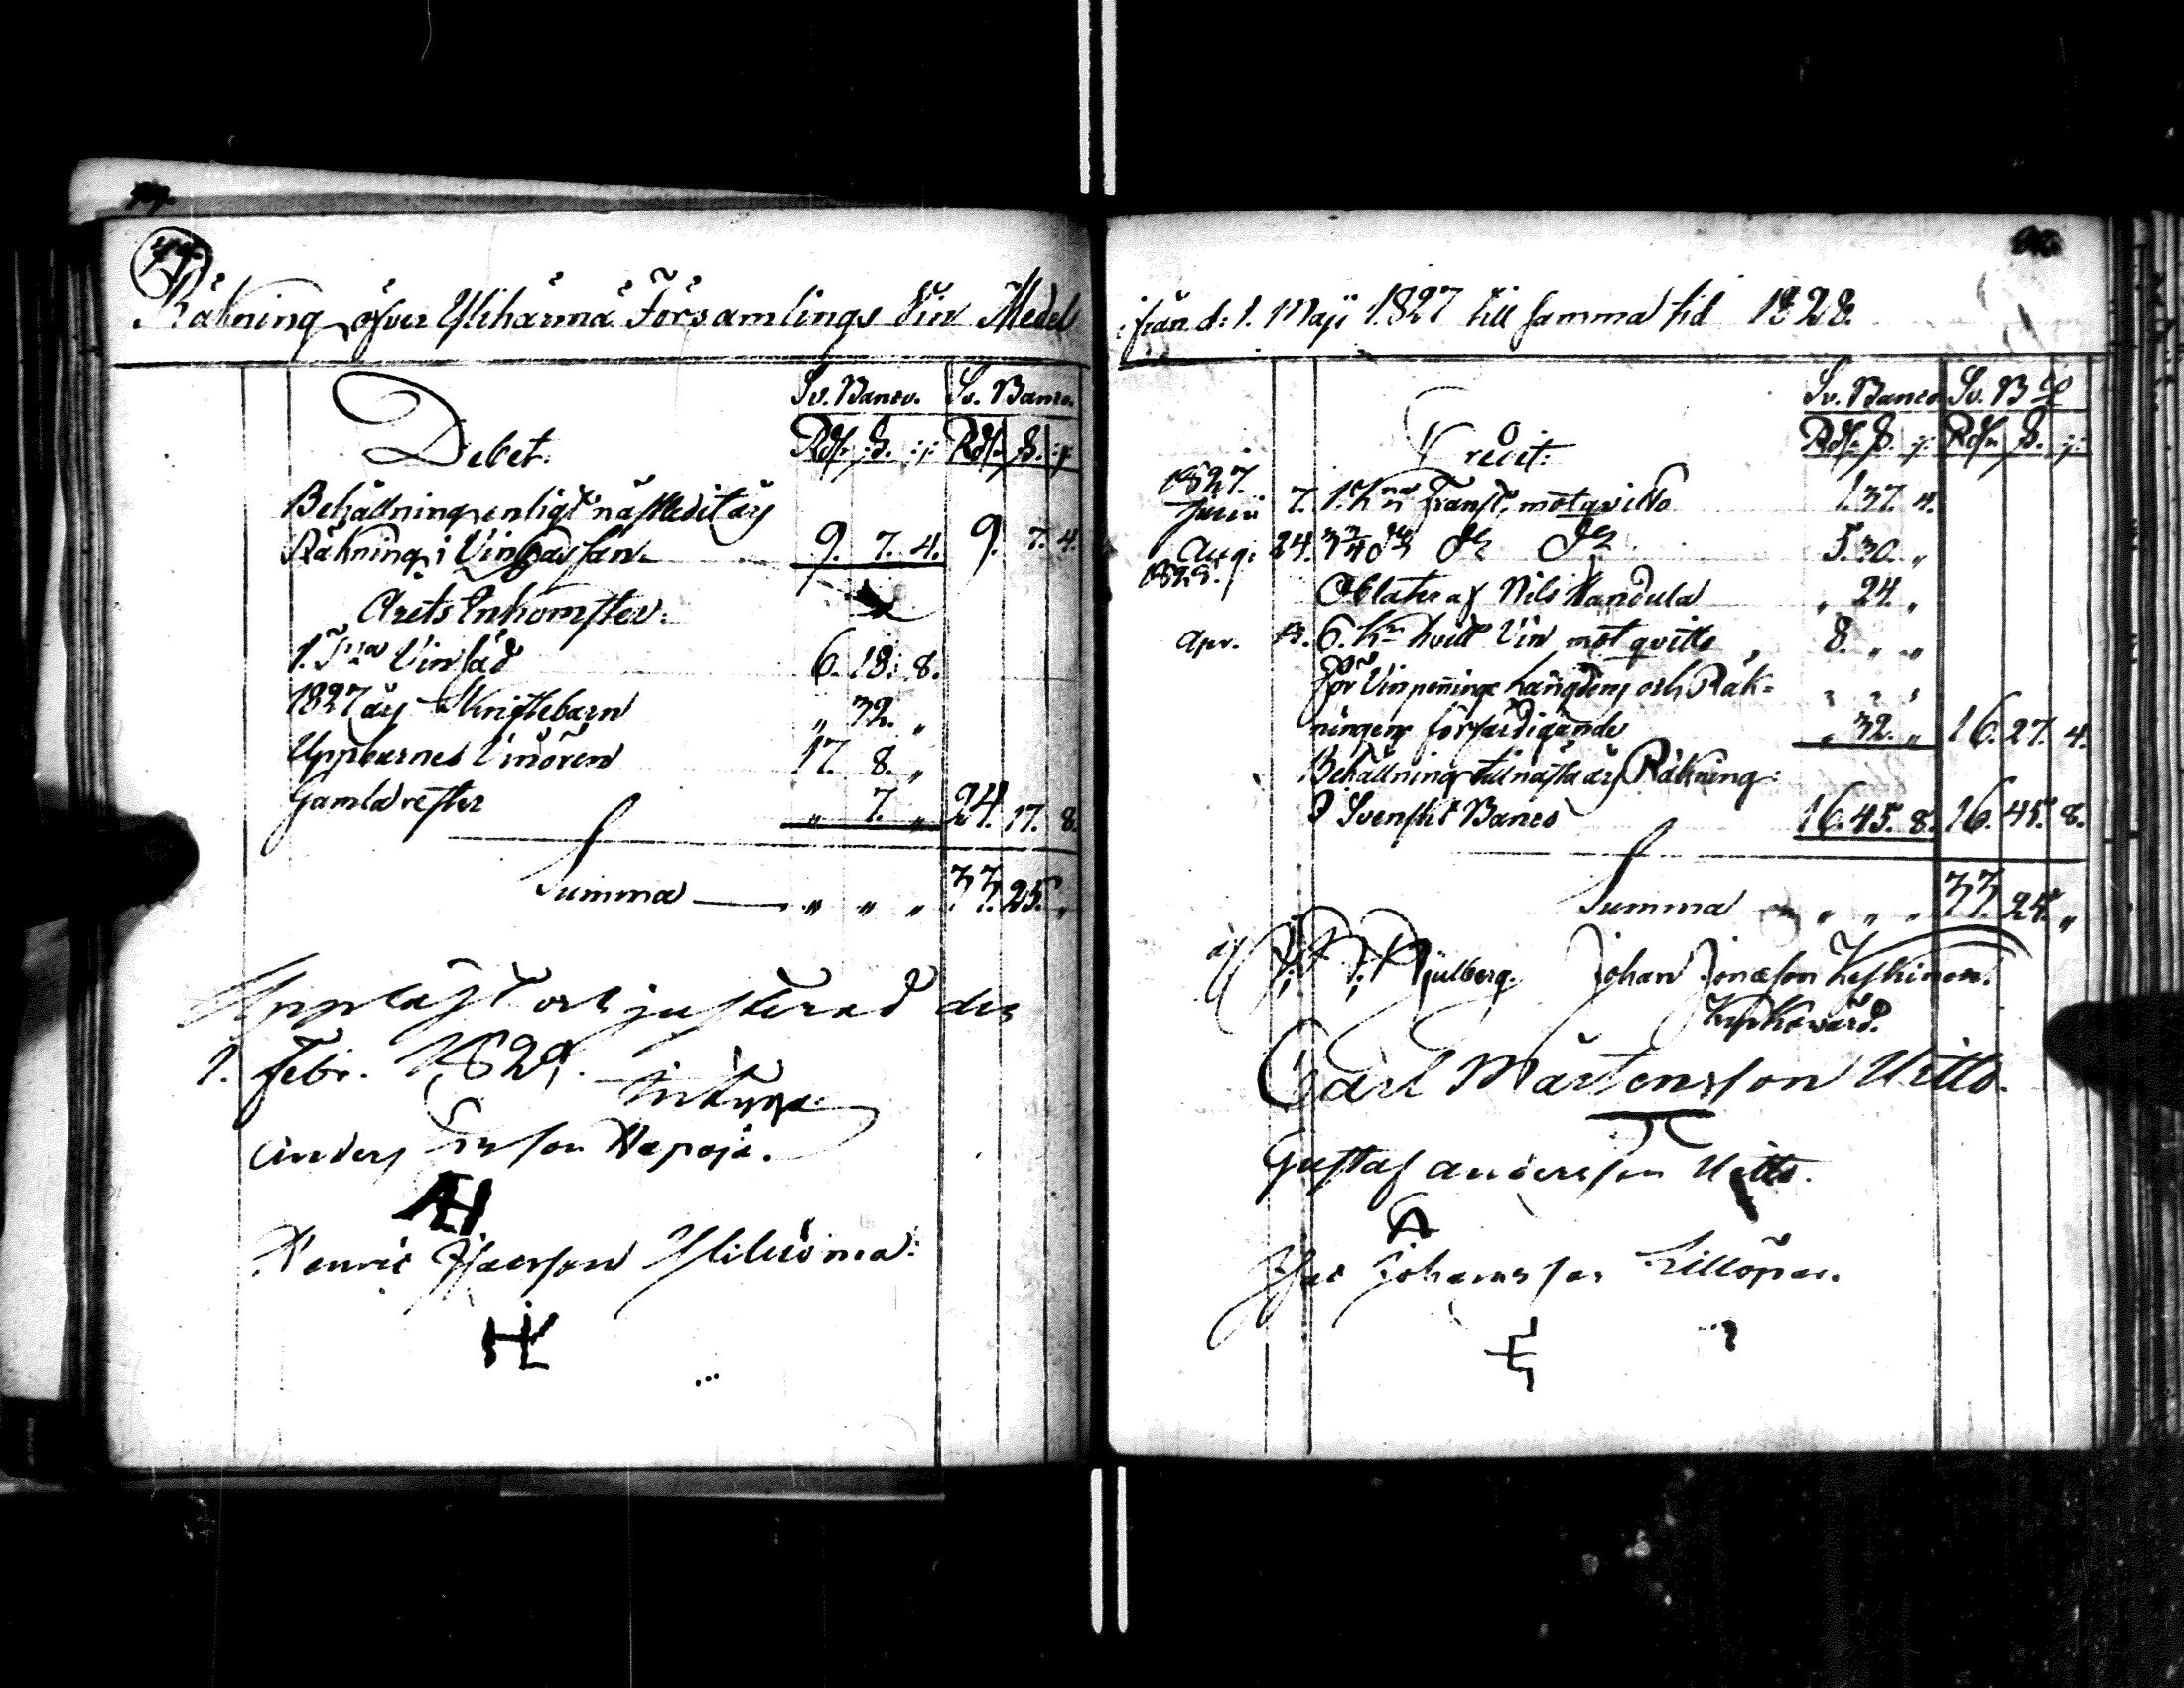 Räkning öfver Ylihärmä Församlings Vin Medel
Debet.
Sv. Banco. Sv. Banco.
Rdr. s. r. Rdr. s. r.
Behållning enligt nästledit års
Räkning i Vin Cassan 9. 7. 4. 9. 7. 4.
Årets Inkomster:
1. T:na Vinsäd 6. 18. 8.
1827 års Skriftebarn „ 32. „
Uppburnes Vinören 17. 8. „
Gamla rester „ 7. „ 24. 17. 8.
Summa „ „ „ 33. 25. „
Uppläst och justerad den
1. Febr. 1829. intyga:
Anders Ersson Hapoja.
AH
Henric Isacsson Yliluoma:
HI
ifrån d: 1. Maji 1827 till samma tid 1828.
Credit:
Sv. Banco Sv. Bco
Rdr. s. r. Rdr. s. r.
1827.
Junii 7. 1. K:na Franst. mot qvitto 1. 37. 4.
Aug: 24. 3 3/4 do do do 5. 30. „
1828.
Oblater af Nils Kandula „ 24. „
Apr. 13. 6. K:r hvitt Vin mot qvitto 8. „ „
För Vinpeninge Längdens och Räk-
ningens förfärdigande „ 32. „ 16. 27. 4.
Behållning till nästa års Räkning:
I Svenskt Banco 16. 45. 8. 16. 45. 8.
Summa „ „ „ 33. 25. „
af Johan Jonæson Keskinen.
Kyrkovärd.
Carl Mårtensson Utto.
Gustaf Andersson Utto.
Isac Johansson Lillöpar.